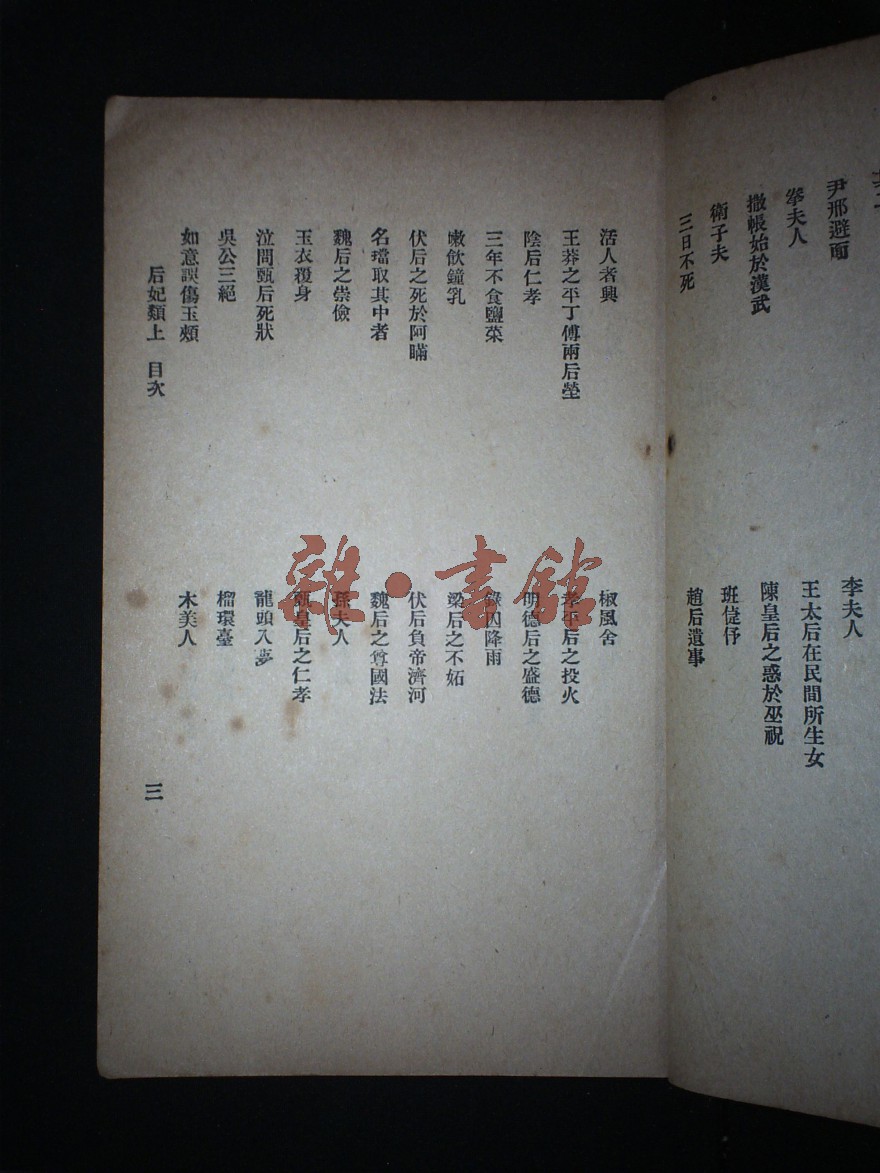 尹邢避面
李夫人
拳夫人
王太后在民間所生女
撒帳始於漢武
陳皇后之惑於巫祝
衛子夫
班倢伃
三日不死
趙后遺事
活人者興
椒風舍
王莽之平丁傅兩后塋
孝平后之投火
陰后仁孝
明德后之盛德
三年不食鹽菜
錄囚降雨
嫩飲鐘乳
梁后之不妬
伏后之死於阿瞞
伏后負帝濟河
名璫取其中者
魏后之尊國法
魏后之崇儉
孫夫人
玉衣覆身
甄皇后之仁孝
泣問甄后死狀
龍頭入夢
吳公三絕
榴環臺
如意誤傷玉頰
木美人
后妃類上 目次
三
雜·書館